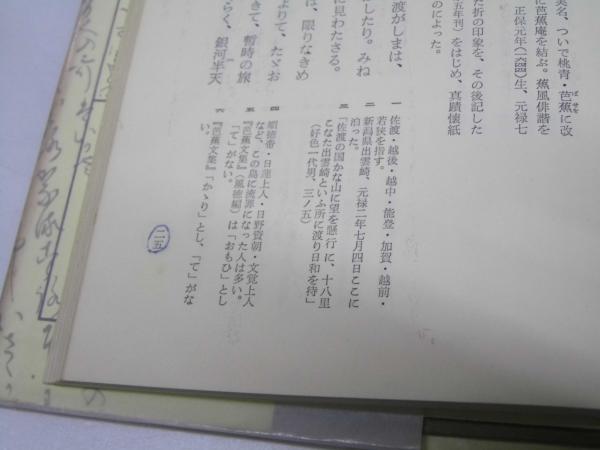 美名、ついで桃青・芭蕉に改
に芭蕉庵を結ぶ。蕉風俳諧を
正保元年(一六四四)生、元禄七
た折の印象を、その後記した
五年刊)をはじめ、真蹟懐紙
のによった。
渡がしまは、
したり。みね
に見わたさる。
は、限りなきめ
よりて、たゞお
きて、暫時の旅
らく、銀河半天
一 佐渡・越後・越中・能登・加賀・越前・
若狭を指す。
二 新潟県出雲崎、元禄二年七月四日ここに
泊った。
三 「佐渡の国かな山に望を懸行に、十八里
こなた出雲崎といふ所に渡り日和を待」
(好色一代男、三ノ五)
四 順徳帝・日蓮上人・日野資朝・文覚上人
など、この島に流罪になった人は多い。
五 『芭蕉文集』(風徳編)は「おもひ」とし
「て」がない。
六 『芭蕉文集』「かゝり」とし、「て」がな
い。
二五